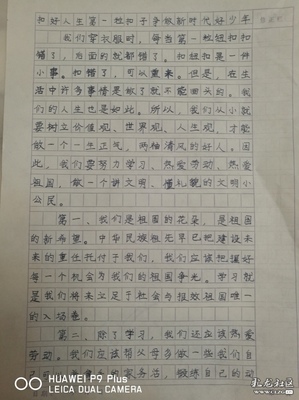 扣好人生第一粒扣子争做新时代好少年
我们穿衣服时。每当第一粒纽扣扣
错了，后面的就都错了。扣纽扣是一件
小事。扣错了，可以重来。但是，在生
活中许多事情是做了就不能回头的。我
们的人生也是如此。所以，我们从小就
要树立价值观、世界观、人生观，才能
做一个一生正气，两袖清风的好人。因
此，我们要努力学习、热爱劳动、热爱
祖国，做一个讲文明、懂礼貌的文明小
公民。
第一、我们是祖国的花朵，是祖国
的新希望。中华民族祖先早已把建设未
来的重任托付于我们，我们应该把握好
每一个机会为我们的祖国争光。学习就
是我们将来立足于社会与报效祖国唯一
的入场卷。
第二、除了学习，我们还应该热爱
劳动。我们应该帮父母为做一些我们自
己
的家务活，锻练自己的动
HUAWEI P9 Plus
LEICA DUAL CAMERA